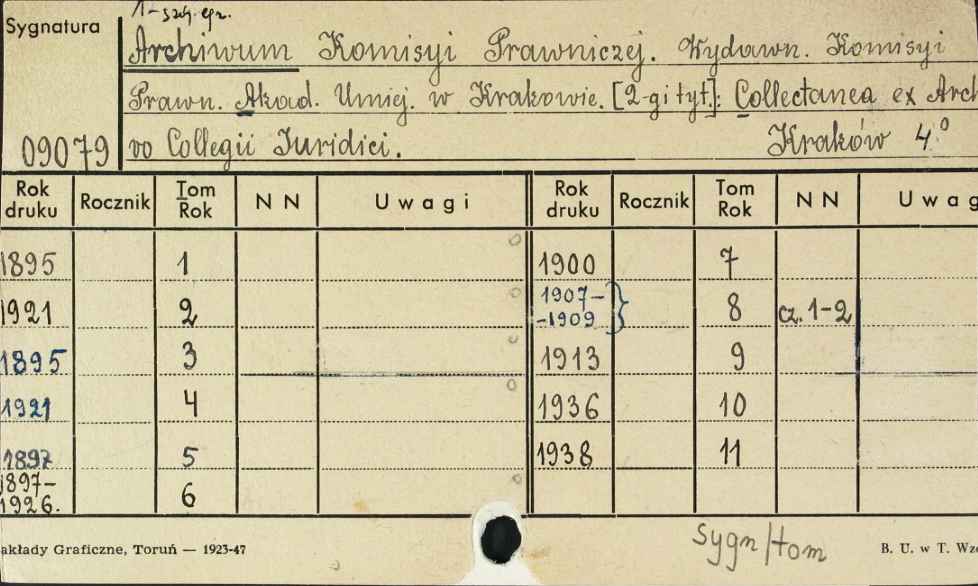 1-szy egz.
Sygnatura
Archiwum Komisyi Prawniczej. Wydawn. Komisyi
Prawn. Akad. Umiej. w Krakowie. [2-gi tyt.]: Collectanea ex Arch
vo Collegii Iuridici. Kraków 4°
09079
Rok druku Rocznik Tom Rok N N Uwagi Rok druku Rocznik Tom Rok N N Uwag
1895 1 1900 7
1921 2 1907--1909 8 cz. 1-2
1895 3 1913 9
1921 4 1936 10
1897 5 1938 11
1897-1926. 6
akłady Graficzne, Toruń — 1923-47
sygn/tom
B. U. w T. Wz